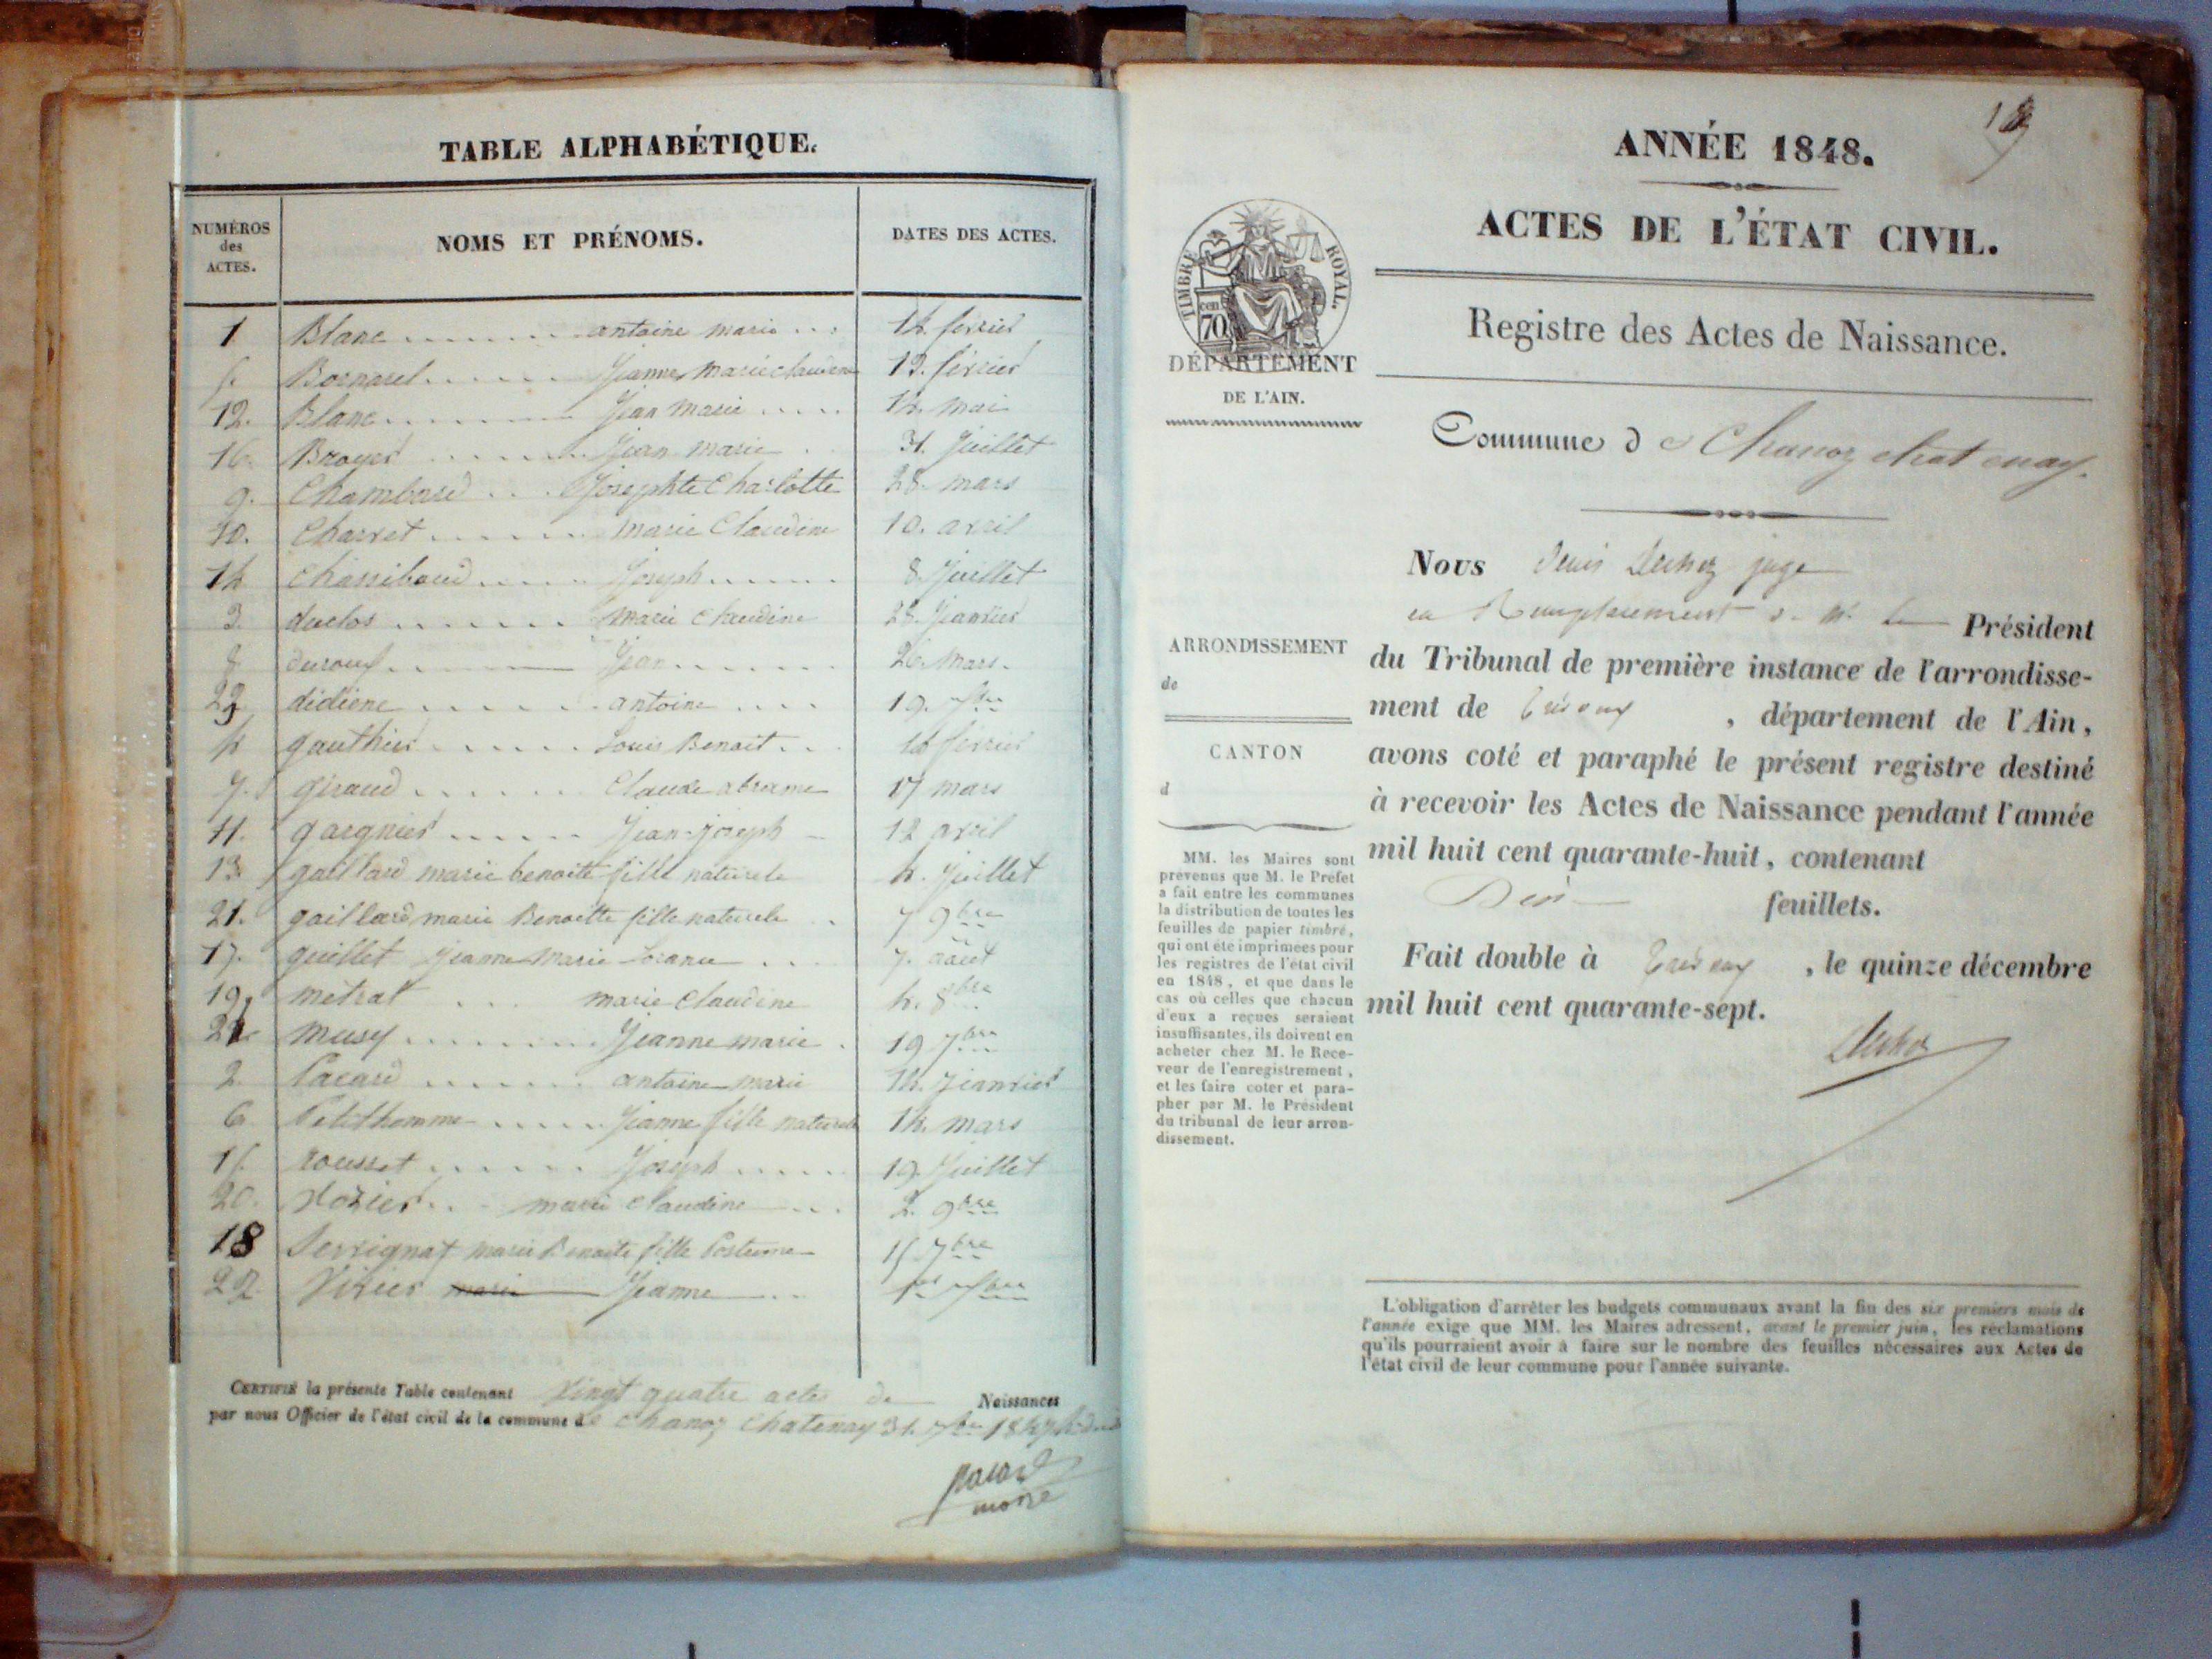 TABLE ALPHABÉTIQUE.
NUMÉROS
des
ACTES.
NOMS ET PRÉNOMS.
DATES DES ACTES.
1 Blanc antoine marie 14. fevrier
5. Bornarel Jeanne marie claudine 19. fevrier
12. Blanc Jean marie 14. mai
16 Broyer Jean marie 31. Juillet
9. Chambard Josephte Charlotte 28. mars
10. Charvet marie Claudine 10. avril
14 Joseph 8. Juillet
3. duclos marie claudine 28. Janvier
8 Jean 26. Mars.
23 antoine 19.
4 gauthier Louis Benoit fevrier
7. giraud Claude 17 mars
11. Jean-joseph 12 avril
13 gaillard marie benoitte fille naturele 4. Juillet
21. gaillard marie Benoitte fille naturele 7 9bre
17. guillet Jeanne Marie 7. août
19 métrat marie Claudine 4. 8bre
musy Jeanne marie 19
2. Pacard antoine marie 14. Janvier
6 Petithomme Jeanne fille naturele 14. mars
15. rousset Joseph 19. Juillet
20. marie claudine 2. 9bre
18 Servignat marie Benoite fille Postume 15 7bre
22 marie Jeanne
CERTIFIÉ la présente Table contenant Vingt quatre actes de Naissances
par nous Officier de l'état civil de la commune de Chanoz Chatenay 31.
pacard
ANNÉE 1848.
ACTES DE L'ÉTAT CIVIL.
TIMBRE ROYAL.
cen
70
DÉPARTEMENT
DE L'AIN.
Registre des Actes de Naissance.
Commune de Chanoz chatenay.
Nous Denis juge
en Remplacement de M. le Président
du Tribunal de première instance de l'arrondisse-
ment de Trévoux, département de l'Ain,
avons coté et paraphé le présent registre destiné
à recevoir les Actes de Naissance pendant l'année
mil huit cent quarante-huit, contenant
feuillets.
Fait double à Trévoux, le quinze décembre
mil huit cent quarante-sept.
ARRONDISSEMENT
de
CANTON
d
MM. les Maires sont
prévenus que M. le Préfet
a fait entre les communes
la distribution de toutes les
feuilles de papier timbré,
qui ont été imprimées pour
les registres de l'état civil
en 1848, et que dans le
cas où celles que chacun
d'eux a reçues seraient
insuffisantes, ils doivent en
acheter chez M. le Rece-
veur de l'enregistrement,
et les faire coter et para-
pher par M. le Président
du tribunal de leur arron-
dissement.
L'obligation d'arrêter les budgets communaux avant la fin des six premiers mois de
l'année exige que MM. les Maires adressent, avant le premier juin, les réclamations
qu'ils pourraient avoir à faire sur le nombre des feuilles nécessaires aux Actes de
l'état civil de leur commune pour l'année suivante.